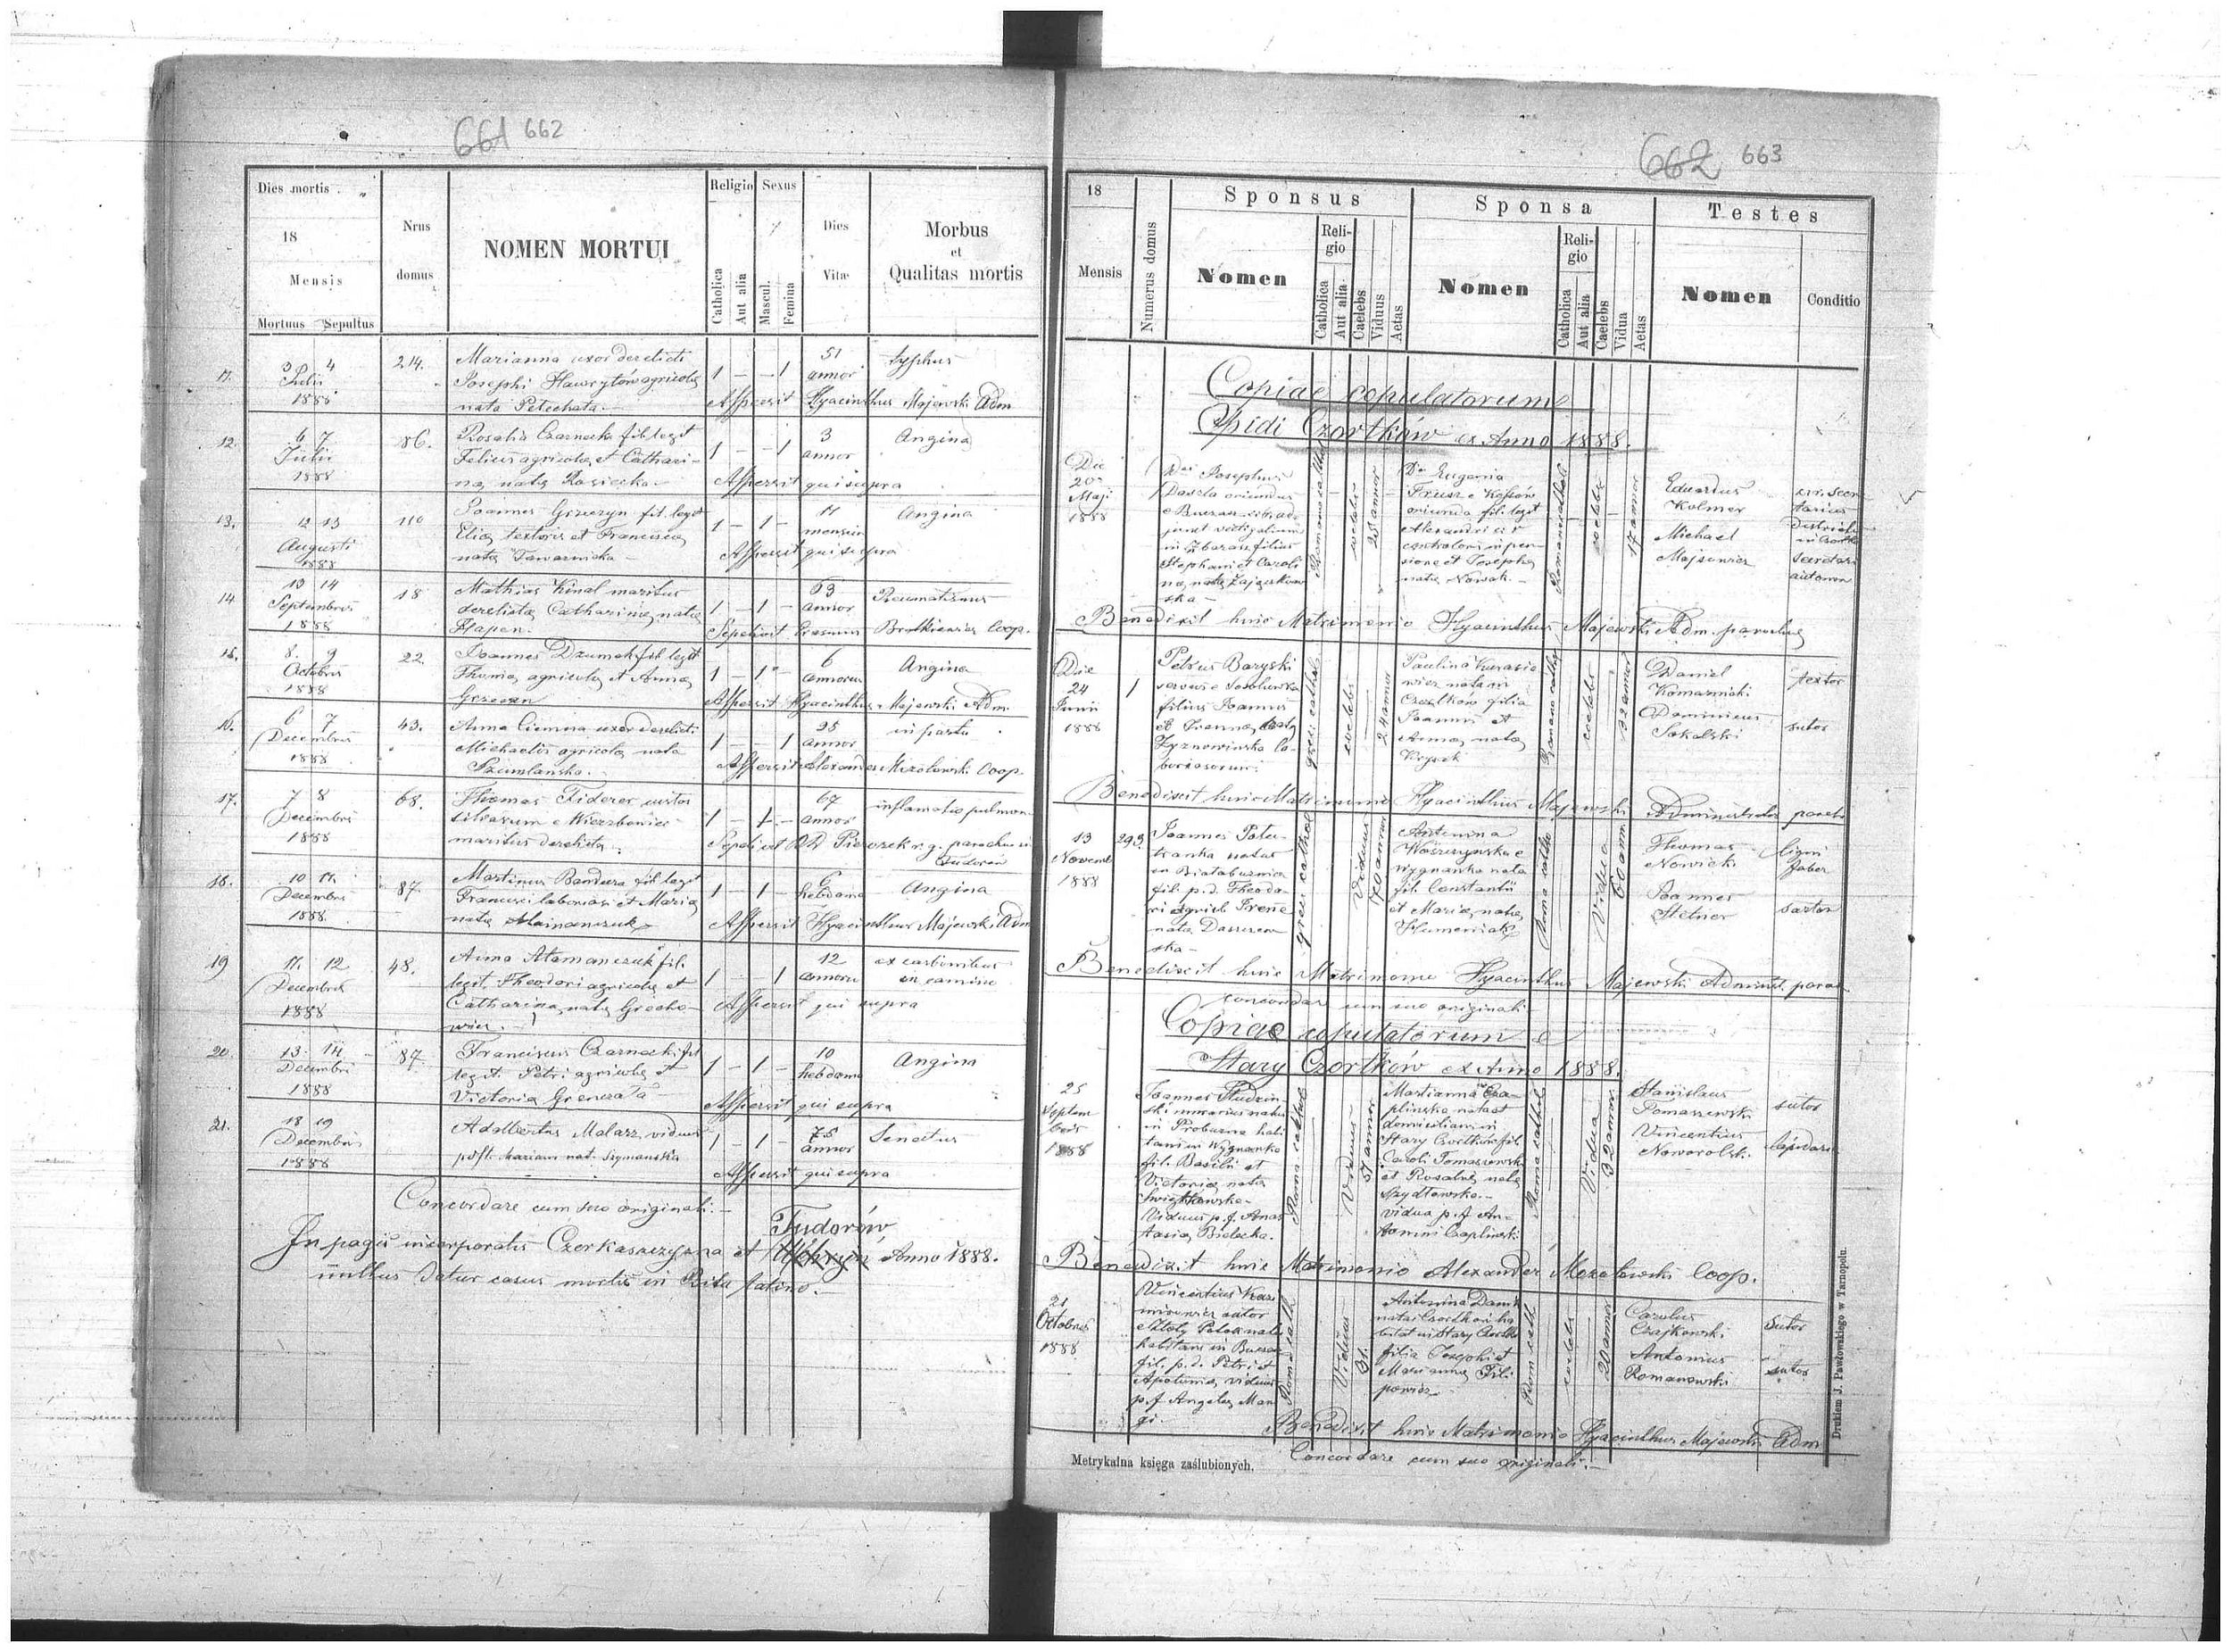 661 662
Dies mortis
18
Mensis
Mortuus Sepultus
Nrus
domus
NOMEN MORTUI
Religio
Catholica
Aut alia
Sexus
Mascul.
Femina
Dies
Vitæ
Morbus
et
Qualitas mortis
3 4
Julii
1888
214.
Marianna uxor derelicti
Josephi Hawrylów agricolę
nata Petechata.—
1 — — 1
51
annor
typhus
Aspersit Hyacinthus Majewski Adm
12.
6 7
Julii
1888
86.
Rosalia Czarnecka fil. legit
agricolę et Cathari-
nę natę
1 — — 1
3
annor
Angina
Aspersit qui supra
13.
12 13
Augusti
1888
110
Joannes Grzezyn fil. legit
Elię textoris et Franciscę
natę Tawarnicka —
1 — 1 —
11
mensium
Angina
Aspersit qui supra
14
13 14
Septembris
1888
18
Mathias Kinal maritus
derelictę Catharinę natę
Hapen.
1 — 1 —
63
annor
Reumatismus
Sepelivit Erasmus Brotkiewicz Coop.
15.
8. 9
Octobris
1888
22.
Joannes Dzumak fil. legit
Thomę agricolę et Annę
1 — 1 —
6
annorum
Angina
Aspersit Hyacinthus Majewski Adm.
16.
6 7
Decembris
1888
43.
Anna Ciemna uxor derelicti
Michaelis agricolę nata
Szumlanska.
1 — 1
25
annor
in partu
Aspersit Alexander Mozolowski Coop.
17.
7 8
Decembris
1888
68.
Thomas Fiderer custos
silvarum e Wierzbowiec
maritus derelictę
1 — 1 —
67
annor
inflamatio pulmon
Sepelivit r. g. parochus in
Tudorów
18.
10 11.
Decembris
1888
87.
Martinus Bandura fil. legit
Francisci laboriosi et Marię
natę
1 — 1 —
6
hebdoma
Angina
Aspersit Hyacinthus Majewski Adm
19
11. 12
Decembris
1888
48.
Anna Atamanczuk fil.
legit. Theodori agricolę et
Catharinę natę Grocho-
wicz.—
1 — — 1
12
annorum
ex carbonibus
in camino
Aspersit qui supra
20.
13. 14
Decembris
1888
87.
Franciscus Czarnecki fil
legit. Petri agricolę et
Victorię
1 — 1 —
10
hebdoma
Angina
Aspersit qui supra
21.
18 19
Decembris
1888
Adalbertus Malarz viduus
post. Mariam nat. Szymanska
1 — 1 —
75
annor
Senectus
Aspersit qui supra
Concordare cum suo originali.—
Tudorów
In pagis incorporatis Czerkaszczyzna et Uhryń Anno 1888.
nullus datur casus mortis in Ritu latino.—
662 663
18
Mensis
Numerus domus
Sponsus
Nomen
Religio
Catholica
Aut alia
Caelebs
Viduus
Aetas
Sponsa
Nomen
Religio
Catholica
Aut alia
Caelebs
Vidua
Aetas
Testes
Nomen
Conditio
Copiae copulatorum
Opidi Czortków ex Anno 1888.
Die
20
Maji
1888
Dns Josephus
oriundus
vectigalium
in Zbaraż filius
Stephani et Caroli
nę natę Zajączkow
ska —
coelebs
25 annor
Dna Eugenia
oriunda fil. legit
Alexandri
in pen-
sione et Josephę
natę Nowak.—
Romano cathol
coelebs
17 annor
Eduardus
Kolmer
Michael
Majsewicz
Benedixit huic Matrimonio Hyacinthus Majewski Adm. parochię
Die
24
Junii
1888
1
Petrus Baryski
servus e Sosolowka
filius Joannis
et Irennę natę
Zyznowinska la-
boriosorum.
greci cathol.
coelebs
24 annor
Paulina Kurasie
wicz nata in
Czortków filia
Joannis et
Annę natę
Krysak
Romano cathol
coelebs
32 annor
Daniel
Komarnicki
textor
Dominicus
Sokolski
sutor
Benedixit huic Matrimonio Hyacinthus Majewski Administrator paroch
13
Novemb
1888
293.
Joannes
natus
in Bialabuznica
fil. p. d. Theodo-
ri agricol Irene
nata
ska —
greci cathol
Viduus
70 annor
Antonina
Woszczynska e
Wygnanka nata
fil. Constantii
et Marię natę
Humeniak
Roma catho
Vidua
60 annor
Thomas
Nowicki
ligni
faber
Joannes
Stetner
sartor
Benedixit huic Matrimonio Hyacinthus Majewski Administ. paroc
Concordare cum suo originali
Copiae copulatorum e
Stary Czortków ex Anno 1888.
25
Septem
bris
1888
Joannes Studzin-
ski murarius natus
in Probuzna habi
tans in Wygnanka
fil. Basilii et
Victorię natę
Swiętkowska.
Viduus p. f. Anas
tasia Bielecka.
Roma cathol
Viduus
51 annor
Marianna Cza-
plinska nata et
domiciliam in
Stary Czortków fil.
Caroli Tomaszewski
et Rosalię natę
Szydłowska.—
vidua p. f. An-
tonini Czaplinski
Roma cathol
Vidua
32 annor
Stanislaus
Tomaszewski
sutor
Vincentius
Noworolski.
Benedixit huic Matrimonio Alexander Mozolowski Coop.
21
Octobris
1888
Vincentius Kaz
mirowicz sutor
habitans in
fil. p. d. Petri et
Apolonię viduus
p. f. Angela Man
gi.
Roma cath
Viduus
31.
Antonina Danik
nata Czortków ha
bitat in Stary Czortk
filia Josephi et
Mariannę Fili
powicz
Rom cath
coelebs
20 annor
Carolus
Czajkowski
Sutor
Antonius
Romanowski
sutor
Benedixit huic Matrimonio Hyacinthus Majewski Adm
Concordare cum suo originali.—
Metrykalna księga zaślubionych.
Drukiem J. Pawłowskiego w Tarnopolu.